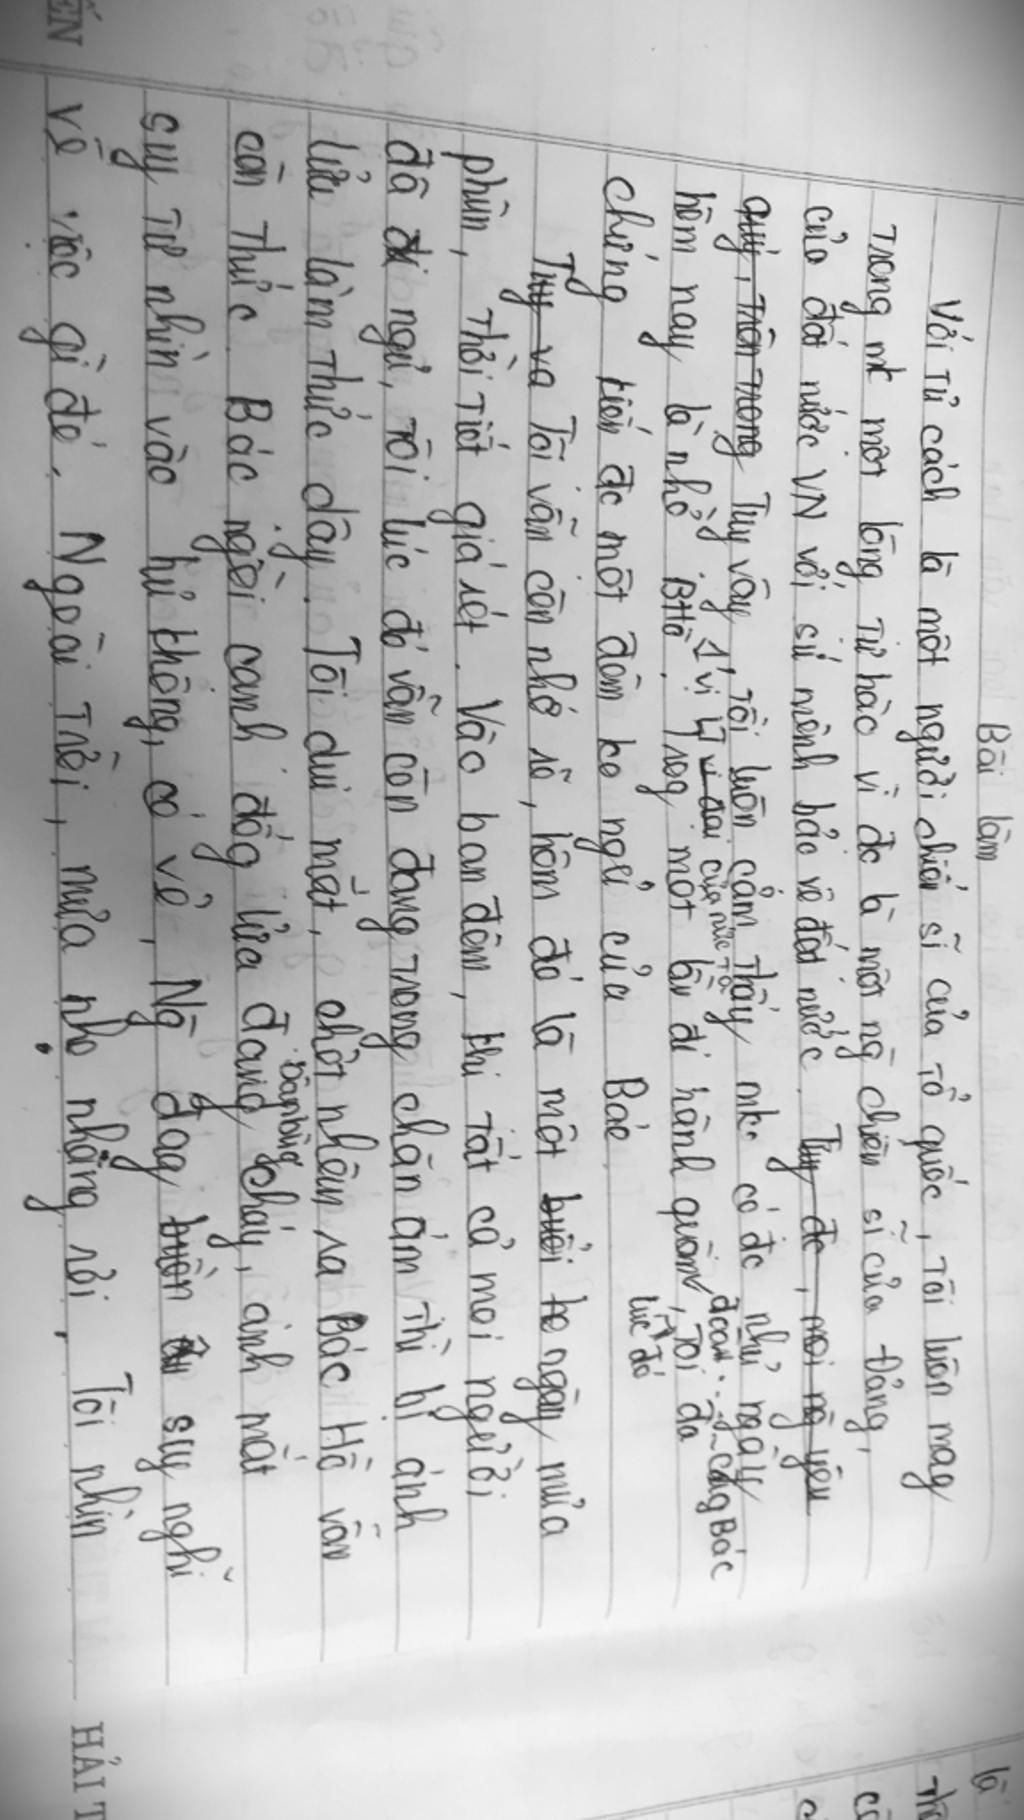 Bài làm
Với tư cách là một người chiến sĩ của tổ quốc, tôi luôn mag
trong mk một lòng tự hào vì đc là một ng chiến sĩ của Đảng,
của đất nước VN với sứ mệnh bảo vệ đất nước. Tuy đc, mọi ng yêu
quý, trân trọng Tuy vậy, tôi luôn cảm thấy mk có đc như ngày
1 vị LT vĩ đại của nước ta
hôm nay là nhờ BHồ. Trog một lần đi hành quân, tôi đã
đoàn cùg Bác
lúc đó
chứng kiến đc một đêm ko ngủ của Bác.
Tuy va Tôi vẫn còn nhớ rõ, hôm đó là một buổi ho ngày mưa
phùn, thời tiết giá rét. Vào ban đêm, khi tất cả mọi người
đã đi ngủ, tôi lúc đó vẫn còn đang trong chăn ấm thì bị ánh
lửa làm thức dậy. Tôi dụi mắt, chợt nhận ra Bác Hồ vẫn
còn thức. Bác ngồi cạnh đống lửa đang cháy, ánh mắt
bập bùng
suy tư nhìn vào hư không, có vẻ, Ng đag buồn suy nghĩ
về việc gì đó. Ngoài trời, mưa nho nhỏ rơi. Tôi nhìn
HẢI T
là